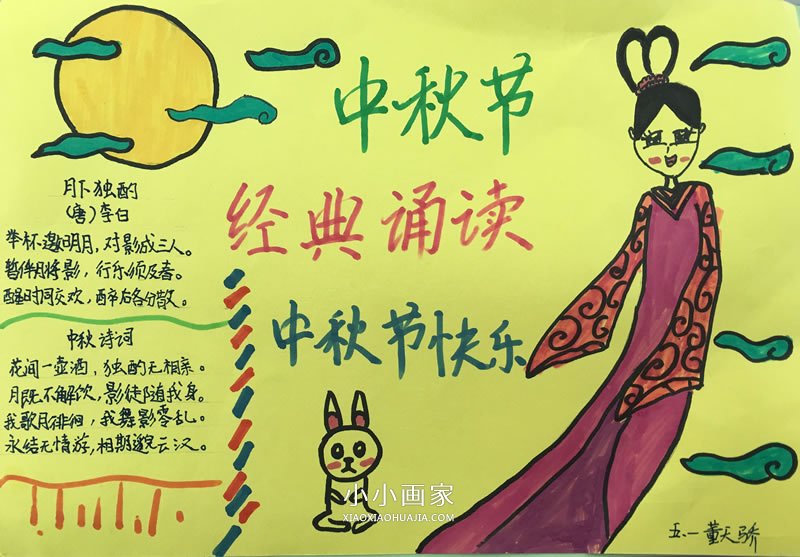 中秋节
经典诵读
中秋节快乐
月下独酌
(唐)李白
举杯邀明月，对影成三人。
暂伴月将影，行乐须及春。
醒时同交欢，醉后各分散。
中秋诗词
花间一壶酒，独酌无相亲。
月既不解饮，影徒随我身。
我歌月徘徊，我舞影零乱。
永结无情游，相期邈云汉。
小小画家
XIAOXIAOHUAJIA.COM
五.一 董天骄